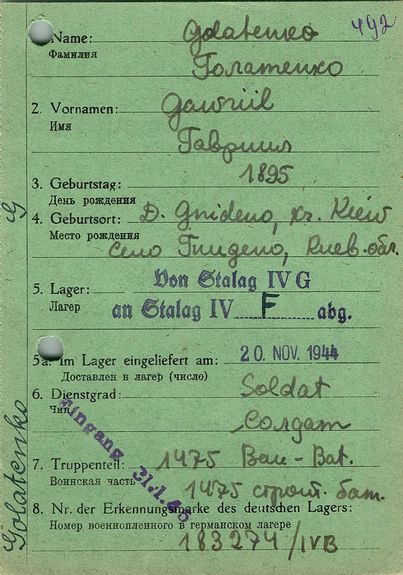 Name: Golatenko 492
Фамилия Голатенко
2. Vornamen: Gawriil
Имя Гавриил
3. Geburtstag: 1895
День рождения
4. Geburtsort: D. Gnideno, kr. Kiew
Место рождения село Гнидено, Киев. обл.
5. Lager: Von Stalag IV G
Лагер an Stalag IV F abg.
5a. Im Lager eingeliefert am: 20. NOV. 1944
Доставлен в лагер (число)
6. Dienstgrad: Soldat
Чин Солдат
Eingang 31.1.45
7. Truppenteil: 1475 Bau-Bat.
Воинская часть 1475 строит. бат.
8. Nr. der Erkennungsmarke des deutschen Lagers:
Номер военнопленного в германском лагере
183274/IVB
G
Golatenko